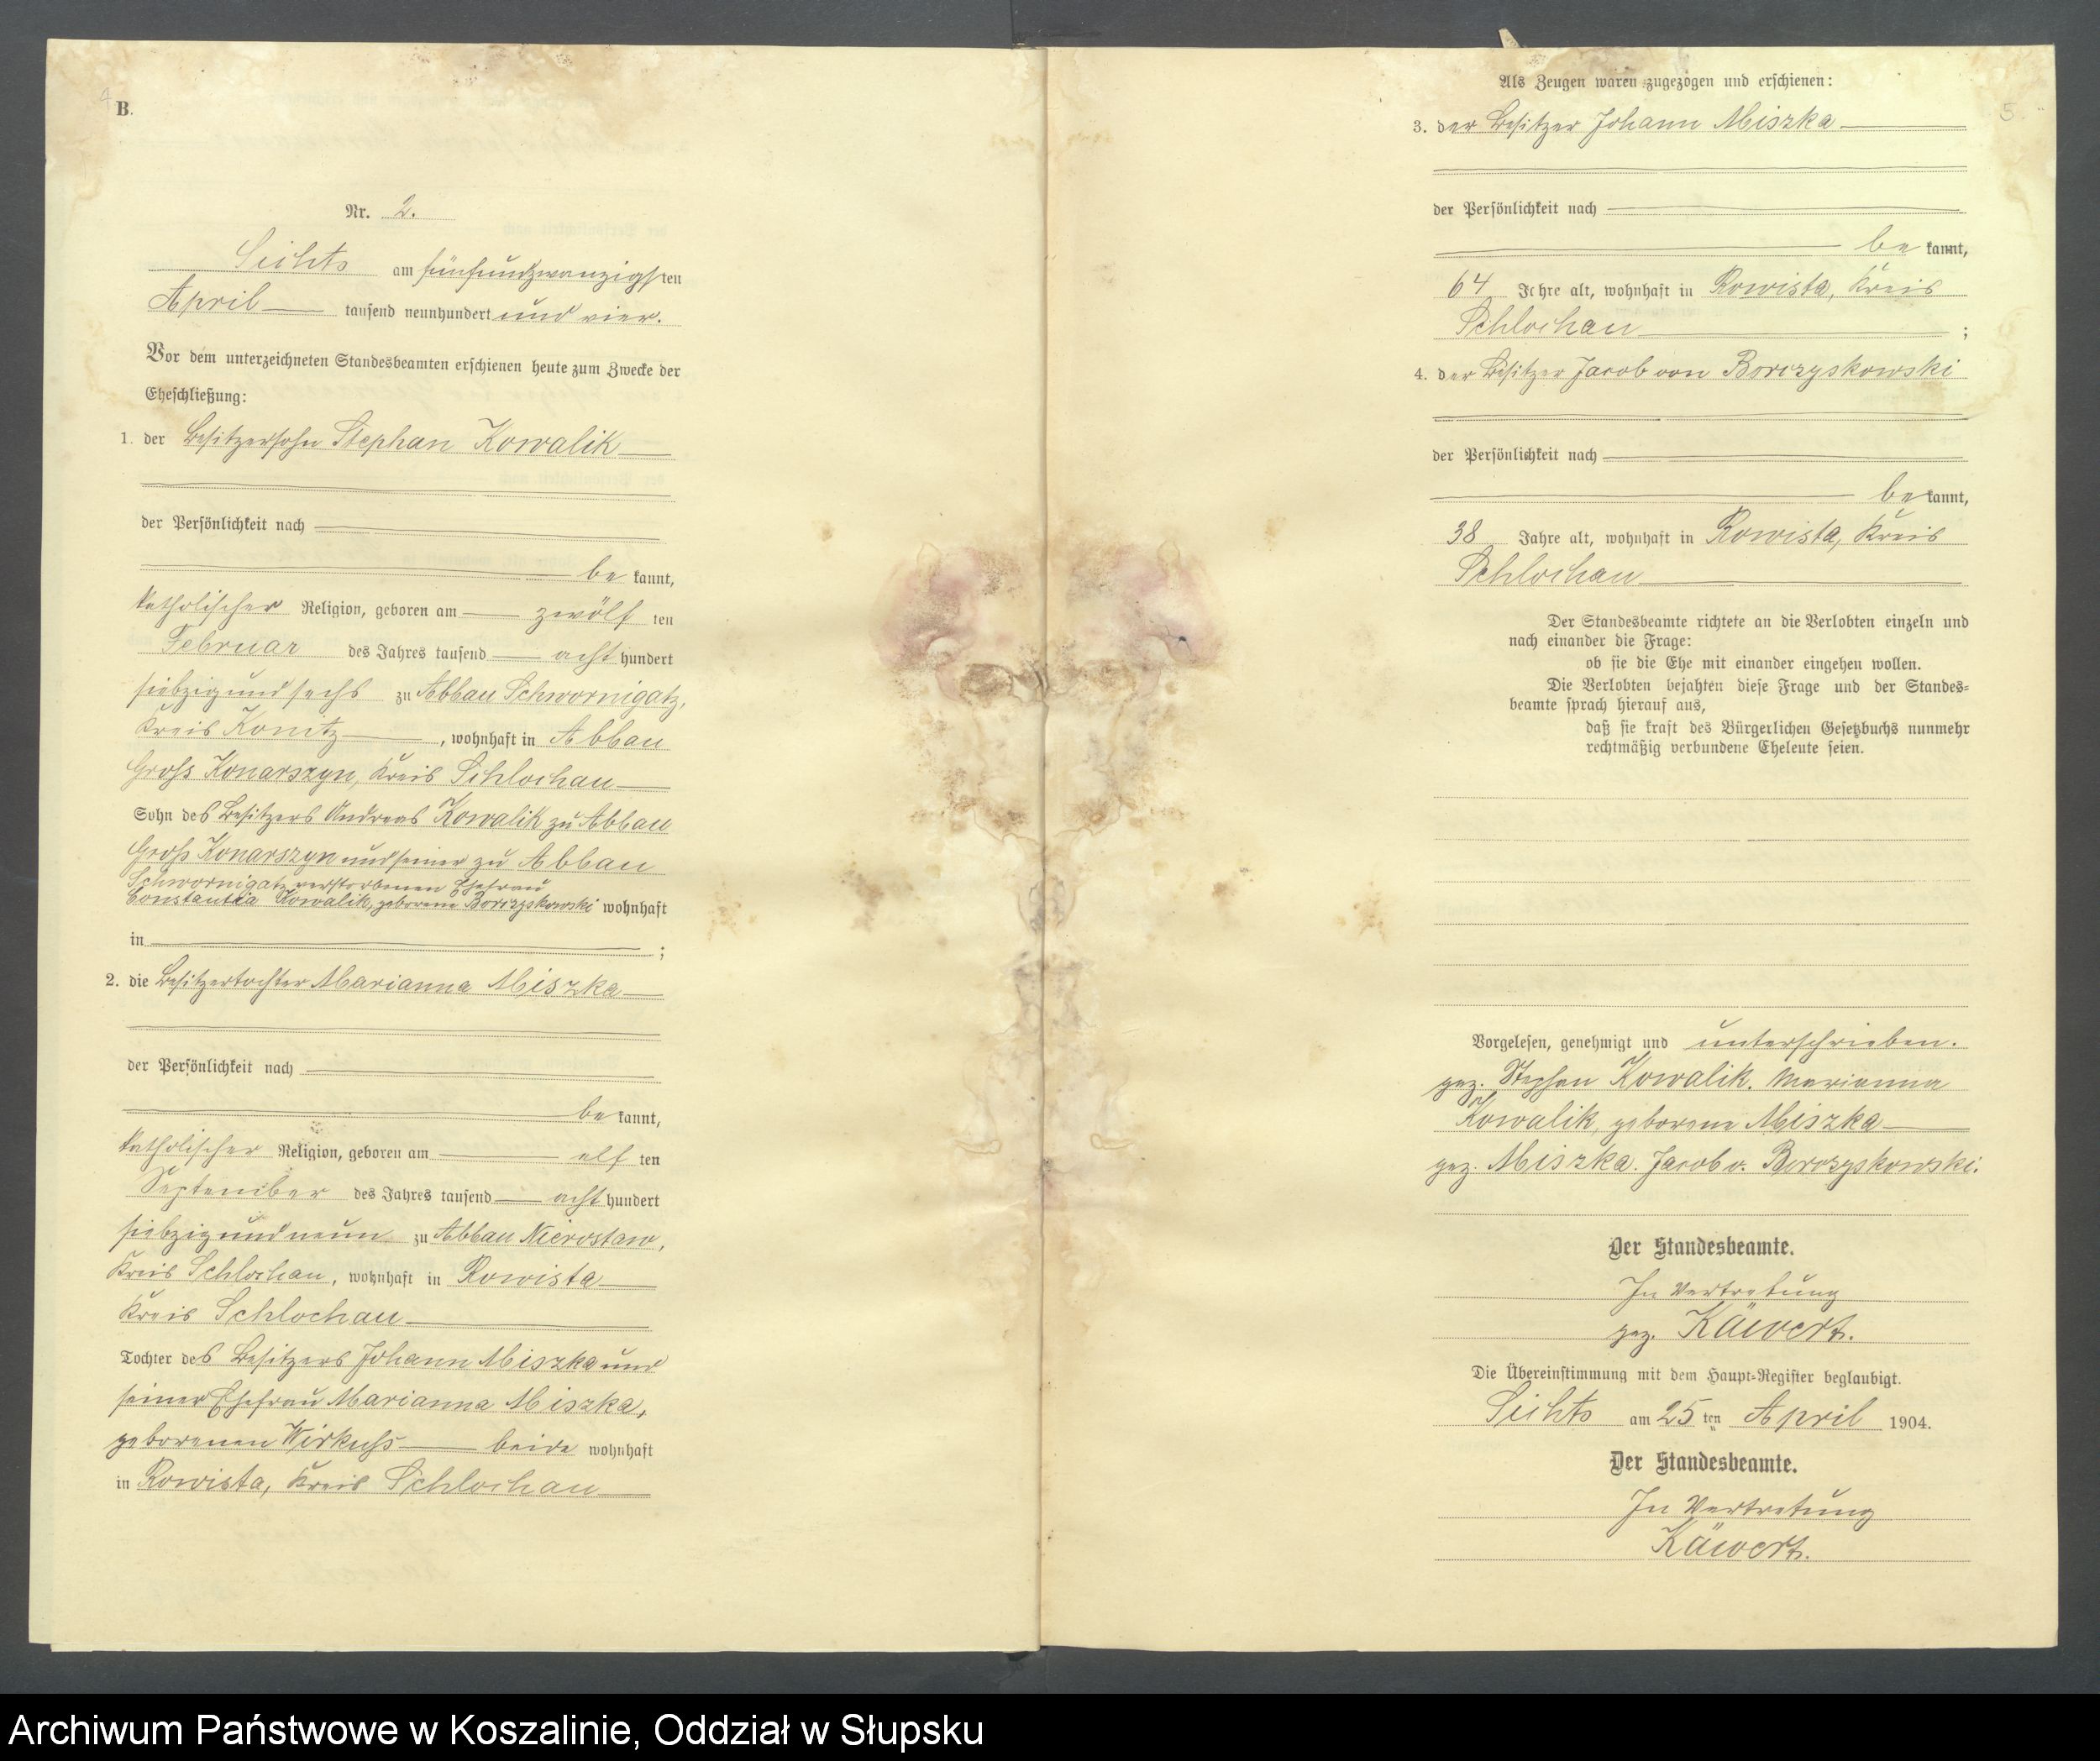 4
B.
Nr. 2.
Sichts am fünfundzwanzigsten
April tausend neunhundert und vier.
Vor dem unterzeichneten Standesbeamten erschienen heute zum Zwecke der
Eheschließung:
1. der Besitzersohn Stephan Kowalik
der Persönlichkeit nach
be kannt,
katholischer Religion, geboren am zwölf ten
Februar des Jahres tausend acht hundert
siebzig und sechs zu Abbau Schwornigatz,
Kreis Konitz, wohnhaft in Abbau
Gross Konarszyn, Kreis Schlochau
Sohn des Besitzers Andreas Kowalik zu Abbau
Gross Konarszyn und seiner zu Abbau
Schwornigatz verstorbenen Ehefrau
Constantia Kowalik, geborene Borczyskowski wohnhaft
in ;
2. die Besitzertochter Marianna Miszka
der Persönlichkeit nach
be kannt,
katholischer Religion, geboren am elf ten
September des Jahres tausend acht hundert
siebzig und neun zu Abbau Nierostaw,
Kreis Schlochau, wohnhaft in Rowista
Kreis Schlochau
Tochter des Besitzers Johann Miszka und
seiner Ehefrau Marianna Miszka,
geborenen Wirkuss beide wohnhaft
in Rowista, Kreis Schlochau
5
Als Zeugen waren zugezogen und erschienen:
3. der Besitzer Johann Miszka
der Persönlichkeit nach
be kannt,
64 Jahre alt, wohnhaft in Rowista, Kreis
Schlochau ;
4. der Besitzer Jacob von Borczyskowski
der Persönlichkeit nach
be kannt,
38 Jahre alt, wohnhaft in Rowista, Kreis
Schlochau
Der Standesbeamte richtete an die Verlobten einzeln und
nach einander die Frage:
ob sie die Ehe mit einander eingehen wollen.
Die Verlobten bejahten diese Frage und der Standes=
beamte sprach hierauf aus,
daß sie kraft des Bürgerlichen Gesetzbuchs nunmehr
rechtmäßig verbundene Eheleute seien.
Vorgelesen, genehmigt und unterschrieben.
gez. Stephan Kowalik. Marianna
Kowalik, geborene Miszka
gez. Miszka. Jacob v. Borczyskowski.
Der Standesbeamte.
In Vertretung
gez. Käwert.
Die Übereinstimmung mit dem Haupt=Register beglaubigt.
Sichts am 25 ten April 1904.
Der Standesbeamte.
In Vertretung
Käwert.
Archiwum Państwowe w Koszalinie, Oddział w Słupsku